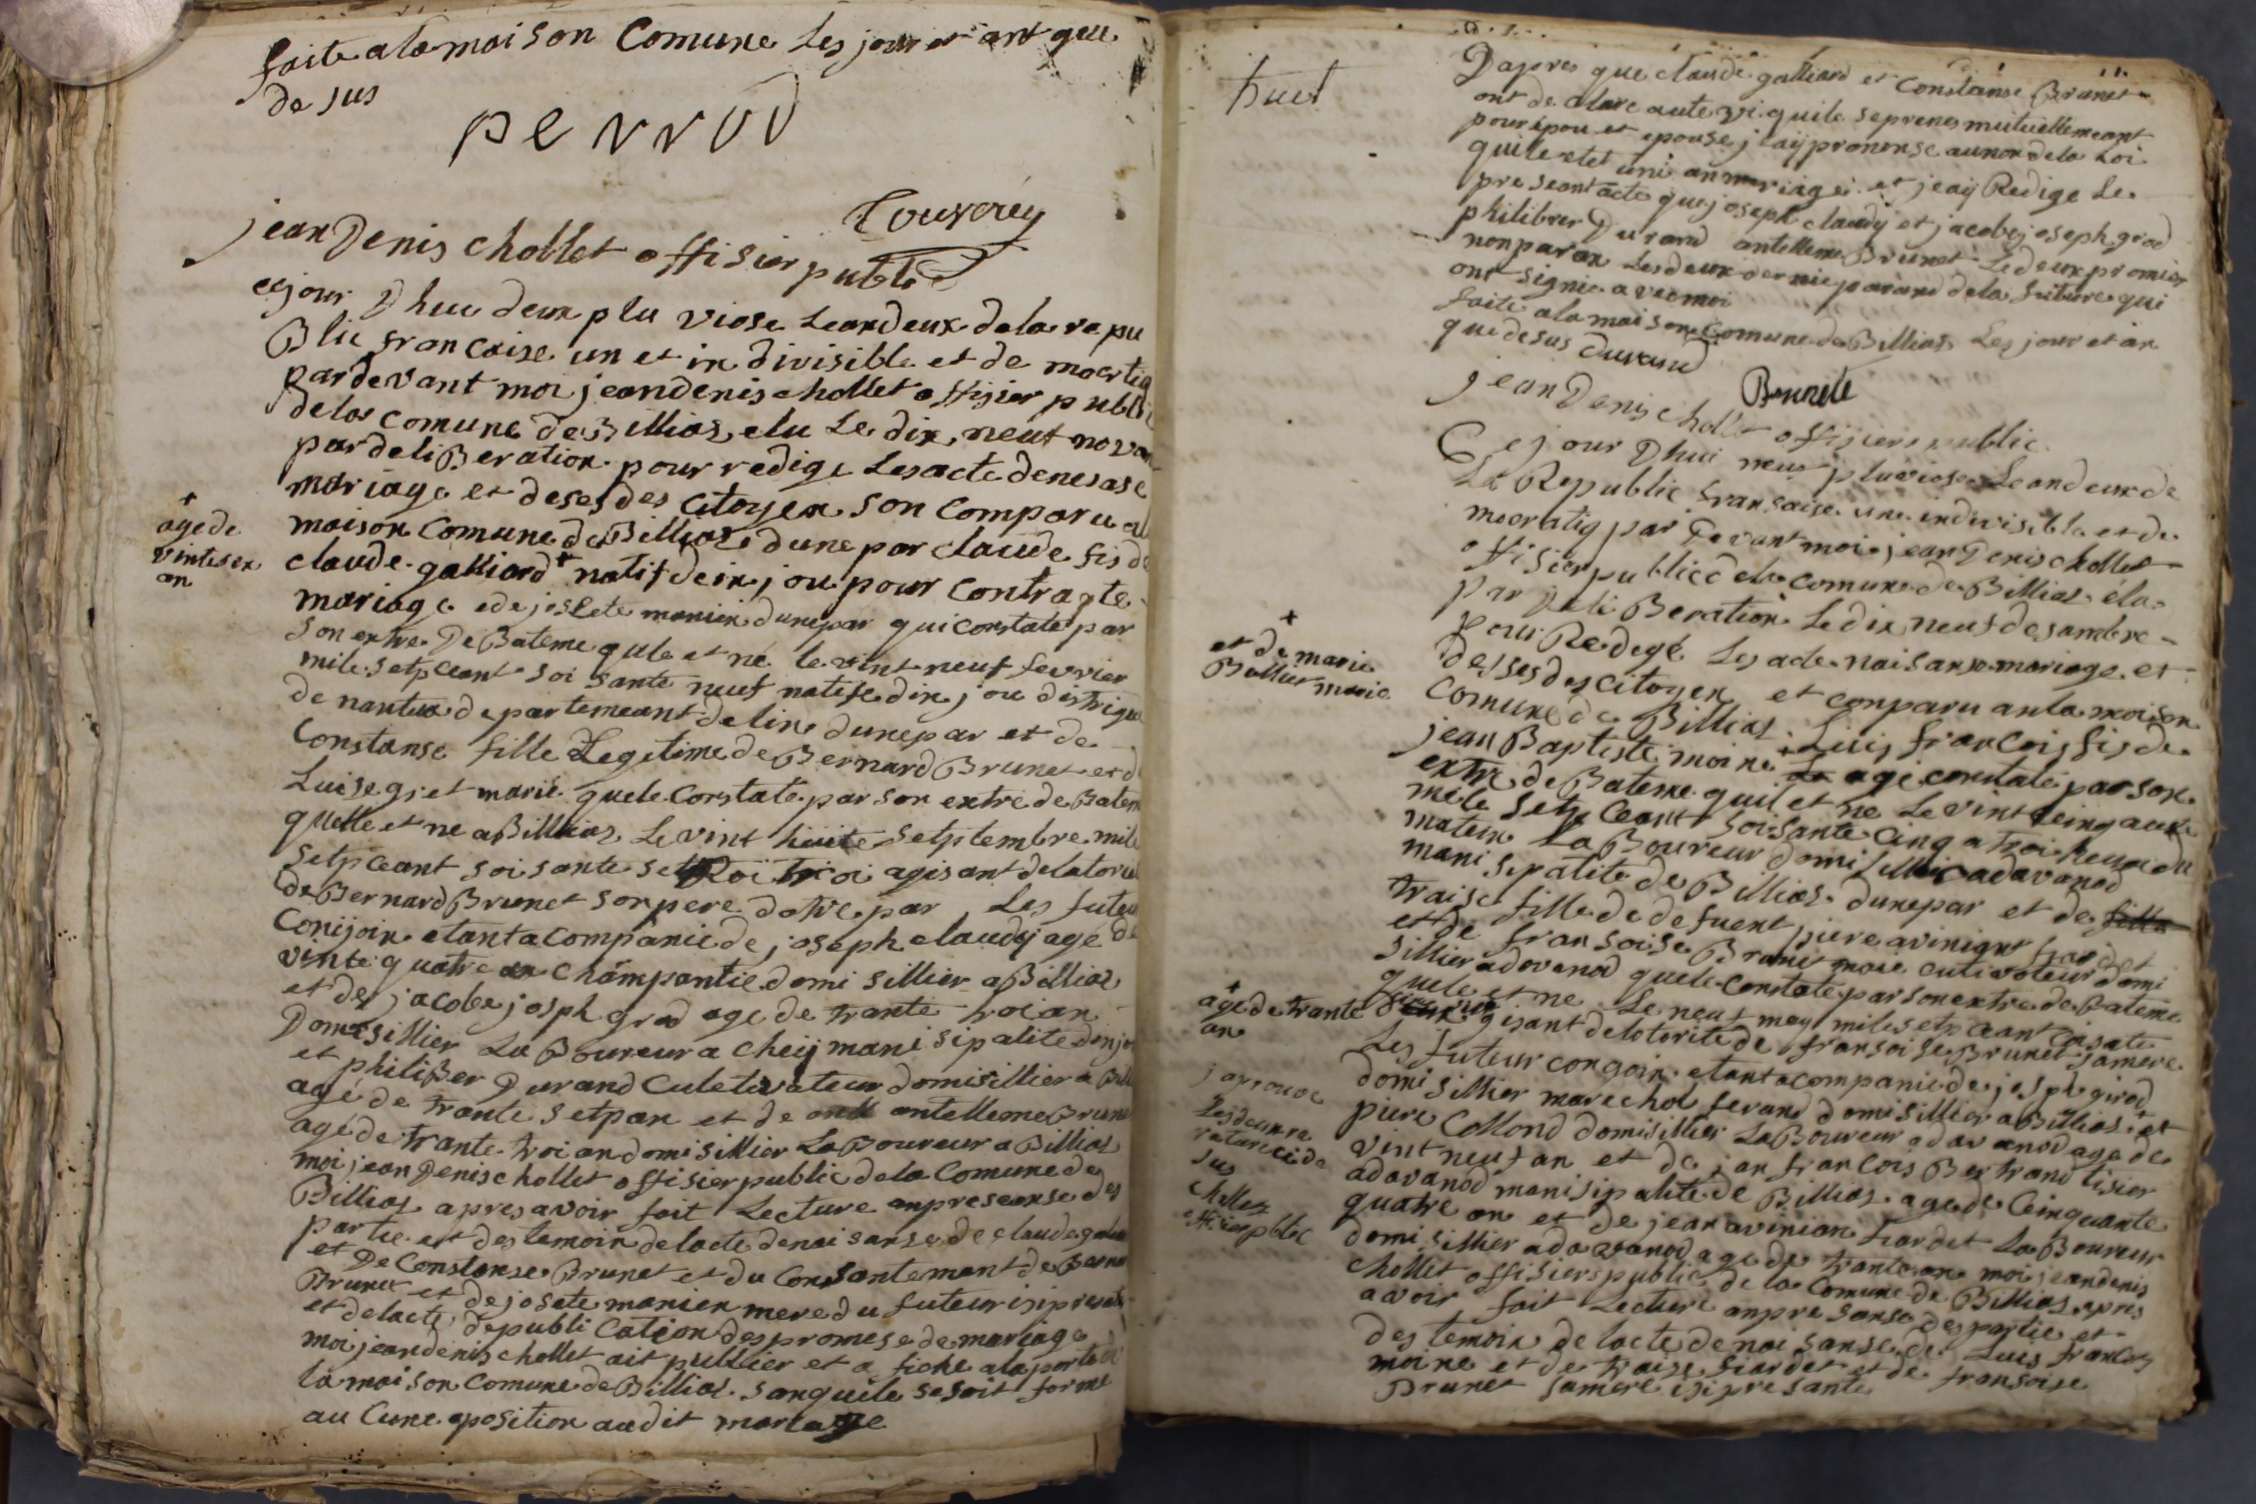 faite a la maison Comune les jour et ant que
de sus
perrod
Touvrey
jean Denis chollet offisier public
cejour Dhuc deux plu viose leandeux dela repu
Blic francaise un et in divisible et de mocrtiq
par devant moi jeandenis chollet offisier public
delas comune de Billias elu Le dix neuf novan
par deliBeration pour redige Lesacte denesase
mariage et deses des Citoyen son comparu a la
maison Comune de Billias dune par claude fis de
+
age de
vintesex
an
claude galliard + natif de in jou pour contracte
mariage ede joslete manien dunepar qui constate par
son extre De Bateme quele et né le vint neuf fevrier
mile setp ceant soi sante neuf natif de din jou distrique
de nantua departemeant delin dunepar et de
Constanse fille Legetime de Bernard Brunet et de
Luise gret marié quele Constate par son extre de Batem
quelle et ne a Billias Le vint huite setptembre mile
setpceant soi sante set troi agisant delatorite
de Bernard Brunet son pere datre par Les futeur
Conijoin etant acompanie de joseph claudy age de
vinte quatre an champantie domi sillier a Billias
et de jacobe josph grod age de trante troi an
Domisillier La Boureur a cheij mani sipalite dinjou
et philiBer Durand Culetivateur domisillier a Bill
agé de trante setpan et de antelleme Brune
agé de trante troi an domisillier La Boureur a Billias
moi jean Denis chollet offisier public dela Comune de
Billias apres avoir fait Lecture anpreseanse des
partie et des temoin delacte denai sanse de claude galiar
et De Constanse Brunet et du Consantemant de Berna
Brunet et de josete manien mere du futeur isipresante
et delacte depubliCation despromese de mariage
moi jeandenis chollet ait publier et a fiche alaporte de
la maison Comune de Billias sanquile sesoit forme
au Cune oposition audit mariage
huet
Dapres que claude galliard et Constanse Brunet
ont declare aute vi quile seprenes mutuellemeant
pour épou et epouse jeaij prononse aunon dela Loi
quile etet uni an mariage et jeaij Redige Le
preseant acte que joseph claudy et jacobe joseph grod
philibrer Durand antelleme Brunet Ledeux promier
nonparan Lesdeux dernie parand dela futeure qui
ont signie a vec moi
faite a la maison Comune de Billias Les jour et an
que de sus Durand
Brunete
jean Denis chollet offisier public
Cejour Dhui neuf pluviose Leandeux de
La Republic fransaise une indivisible et de
mocratiq par Devant moi jean Denis chollet
offisier public dela comune de Billias élu
par DeliBeration Le dix neuf desambre
pour Redegé Les acte naisanse mariage et
deses des citoyen et conparu an la maison
+
et de marie
Bollier marie
Comune de Billias Luis francois fis de
jean Baptiste moine + age constate par son
extre de Bateme quil et ne Le vint ceinq aute
mele setp Ceant soisante Cinq a troi heur du
matin La Boureur domisillier adavanod
manisipalite de Billias dunepar et de fille
traise fille de defuent piere avinignt fiardet
et de fransoise Brunet marie cutivateur domi
sillier adavanod quele Constate par son extre de Bateme
quele et ne Le neuf may mile setp ceant soisate
+
age de trante
an
agisant delotorite de fransoise Brunet samere
Les futeur congoin etant acompanie de josph girod
domisillier marechol ferand domisillier a Billias et
piere Collond domisillier La Boureur adavanod age de
vint neuf an et de jan francois Bertrand tisier
adavanod manisipalite de Billias age de Ceinquante
quatre an et de jean avinian fiardet La Boureur
domisillier adavanod age de trante an moi jeandenis
japrouve
Lesdeux ra
ture cide
sus
chollet
offisier pblic
chollet offisier public de la Comune de Billias apres
avoir fait Lecture anpre sanse des partie et
des temoin de lacte denai sanse de Luis francois
moine et de traise fiardet et de fransoise
Brunet samere isipresante